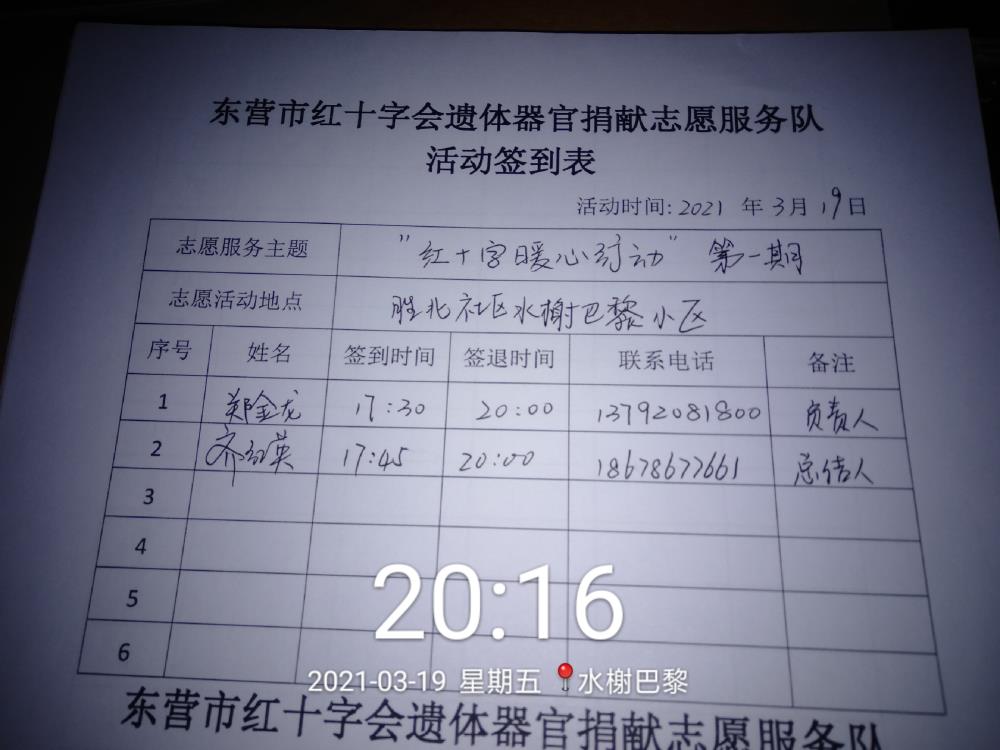 东营市红十字会遗体器官捐献志愿服务队
活动签到表
活动时间: 2021 年 3月 19日
志愿服务主题 "红十字暖心行动" 第一期
志愿活动地点 胜北社区水榭巴黎小区
序号 姓名 签到时间 签退时间 联系电话 备注
1 郑金龙 17:30 20:00 13792081800 负责人
2 齐红英 17:45 20:00 18678677661 总结人
3
4
5
6
20:16
2021-03-19 星期五 水榭巴黎
东营市红十字会遗体器官捐献志愿服务队